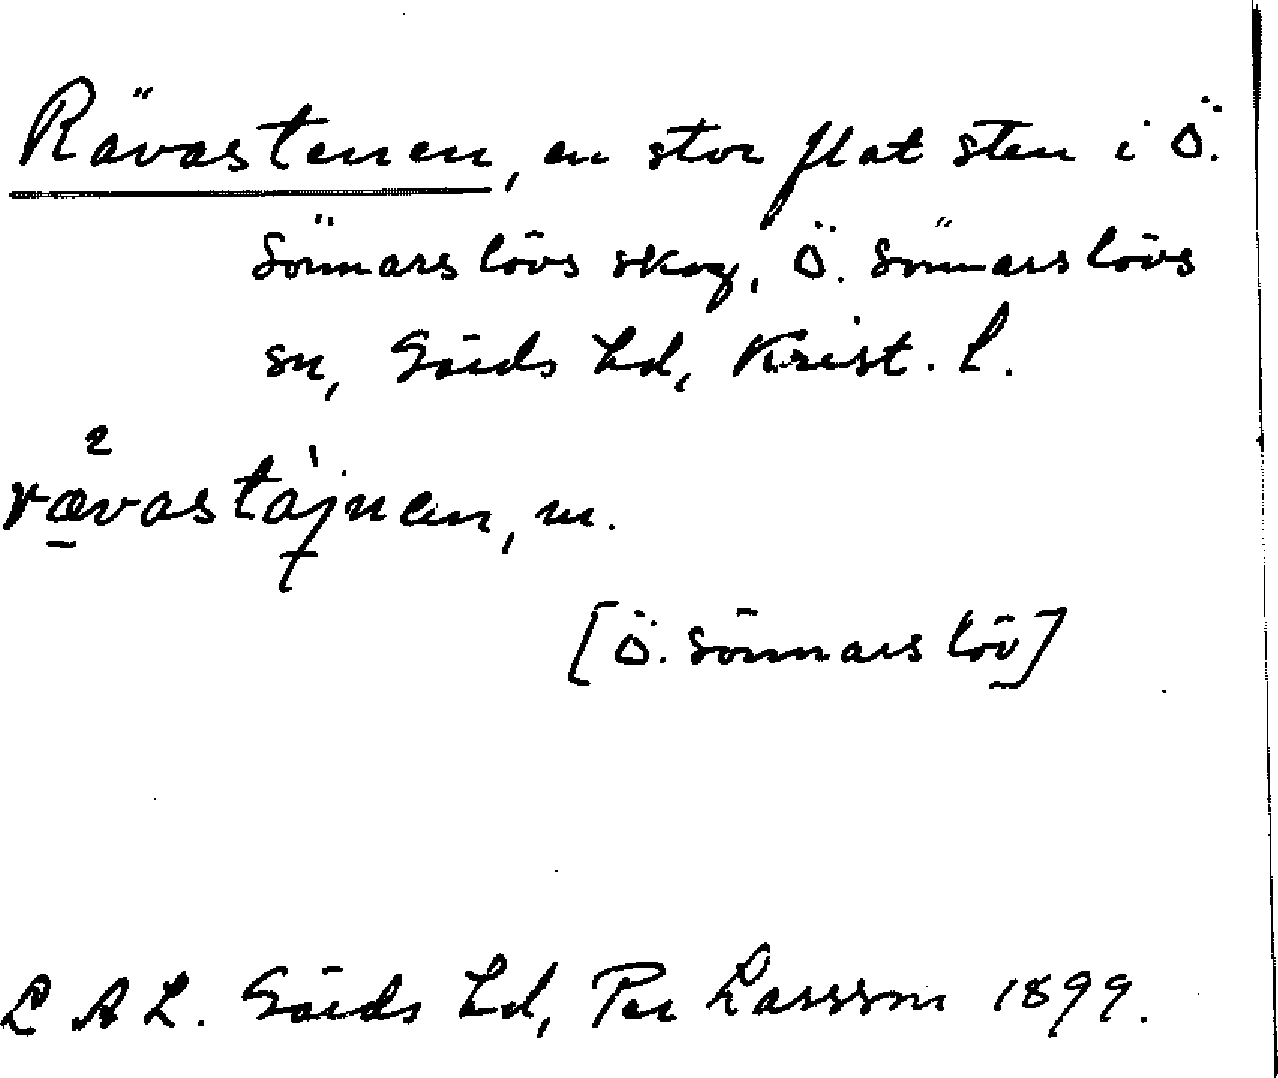 Rävastenen, en stor flat sten i Ö.
Sönnarslövs skog, Ö. Sönnarslövs
sn, Gärds hd, Krist. l.
rævastàjnen, m.
[Ö. Sönnarslöv]
L A L. Gärds hd, Per Larsson 1899.